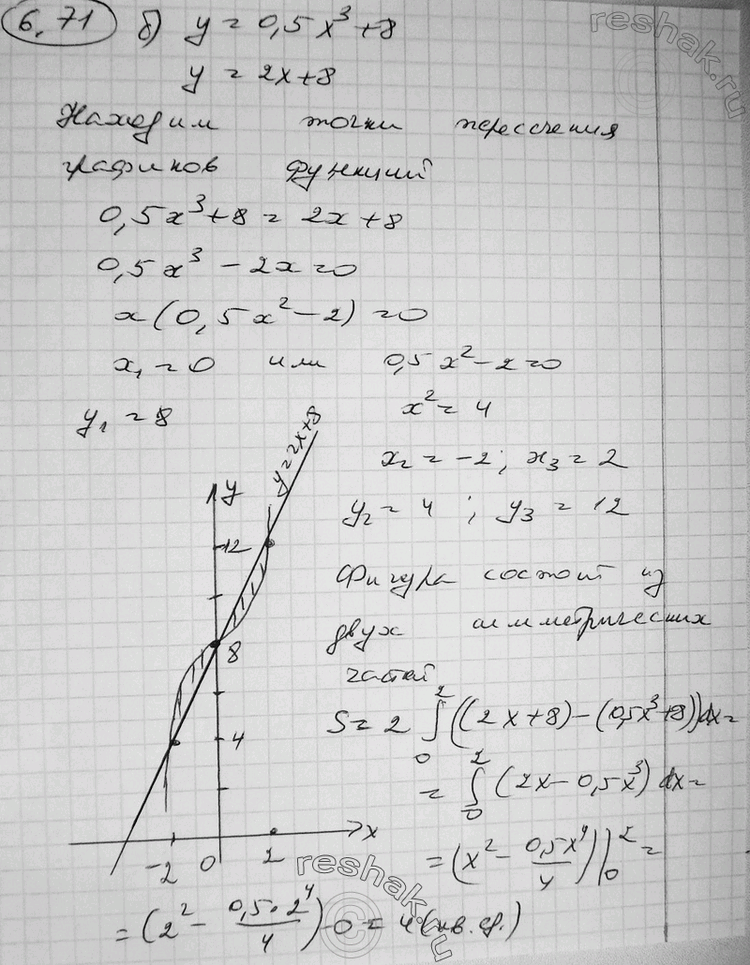 6.71 б) y = 0,5x³+8
y = 2x+8
Находим точки пересечения
графиков функций
0,5x³+8 = 2x+8
0,5x³ - 2x = 0
x(0,5x²-2) = 0
x₁ = 0 или 0,5x²-2=0
y₁ = 8
x² = 4
x₂ = -2; x₃ = 2
y₂ = 4 ; y₃ = 12
y=2x+8
y
12
8
4
-2 0 2 x
Фигура состоит из
двух симметрических
частей
S = 2 ∫₀² ((2x+8)-(0,5x³+8))dx=
= ∫₀² (2x-0,5x³) dx=
= (x² - 0,5x⁴/4)|₀² =
= (2² - 0,5·2⁴/4)-0 = 4 (кв. ед.)
reshak.ru
reshak.ru
reshak.ru